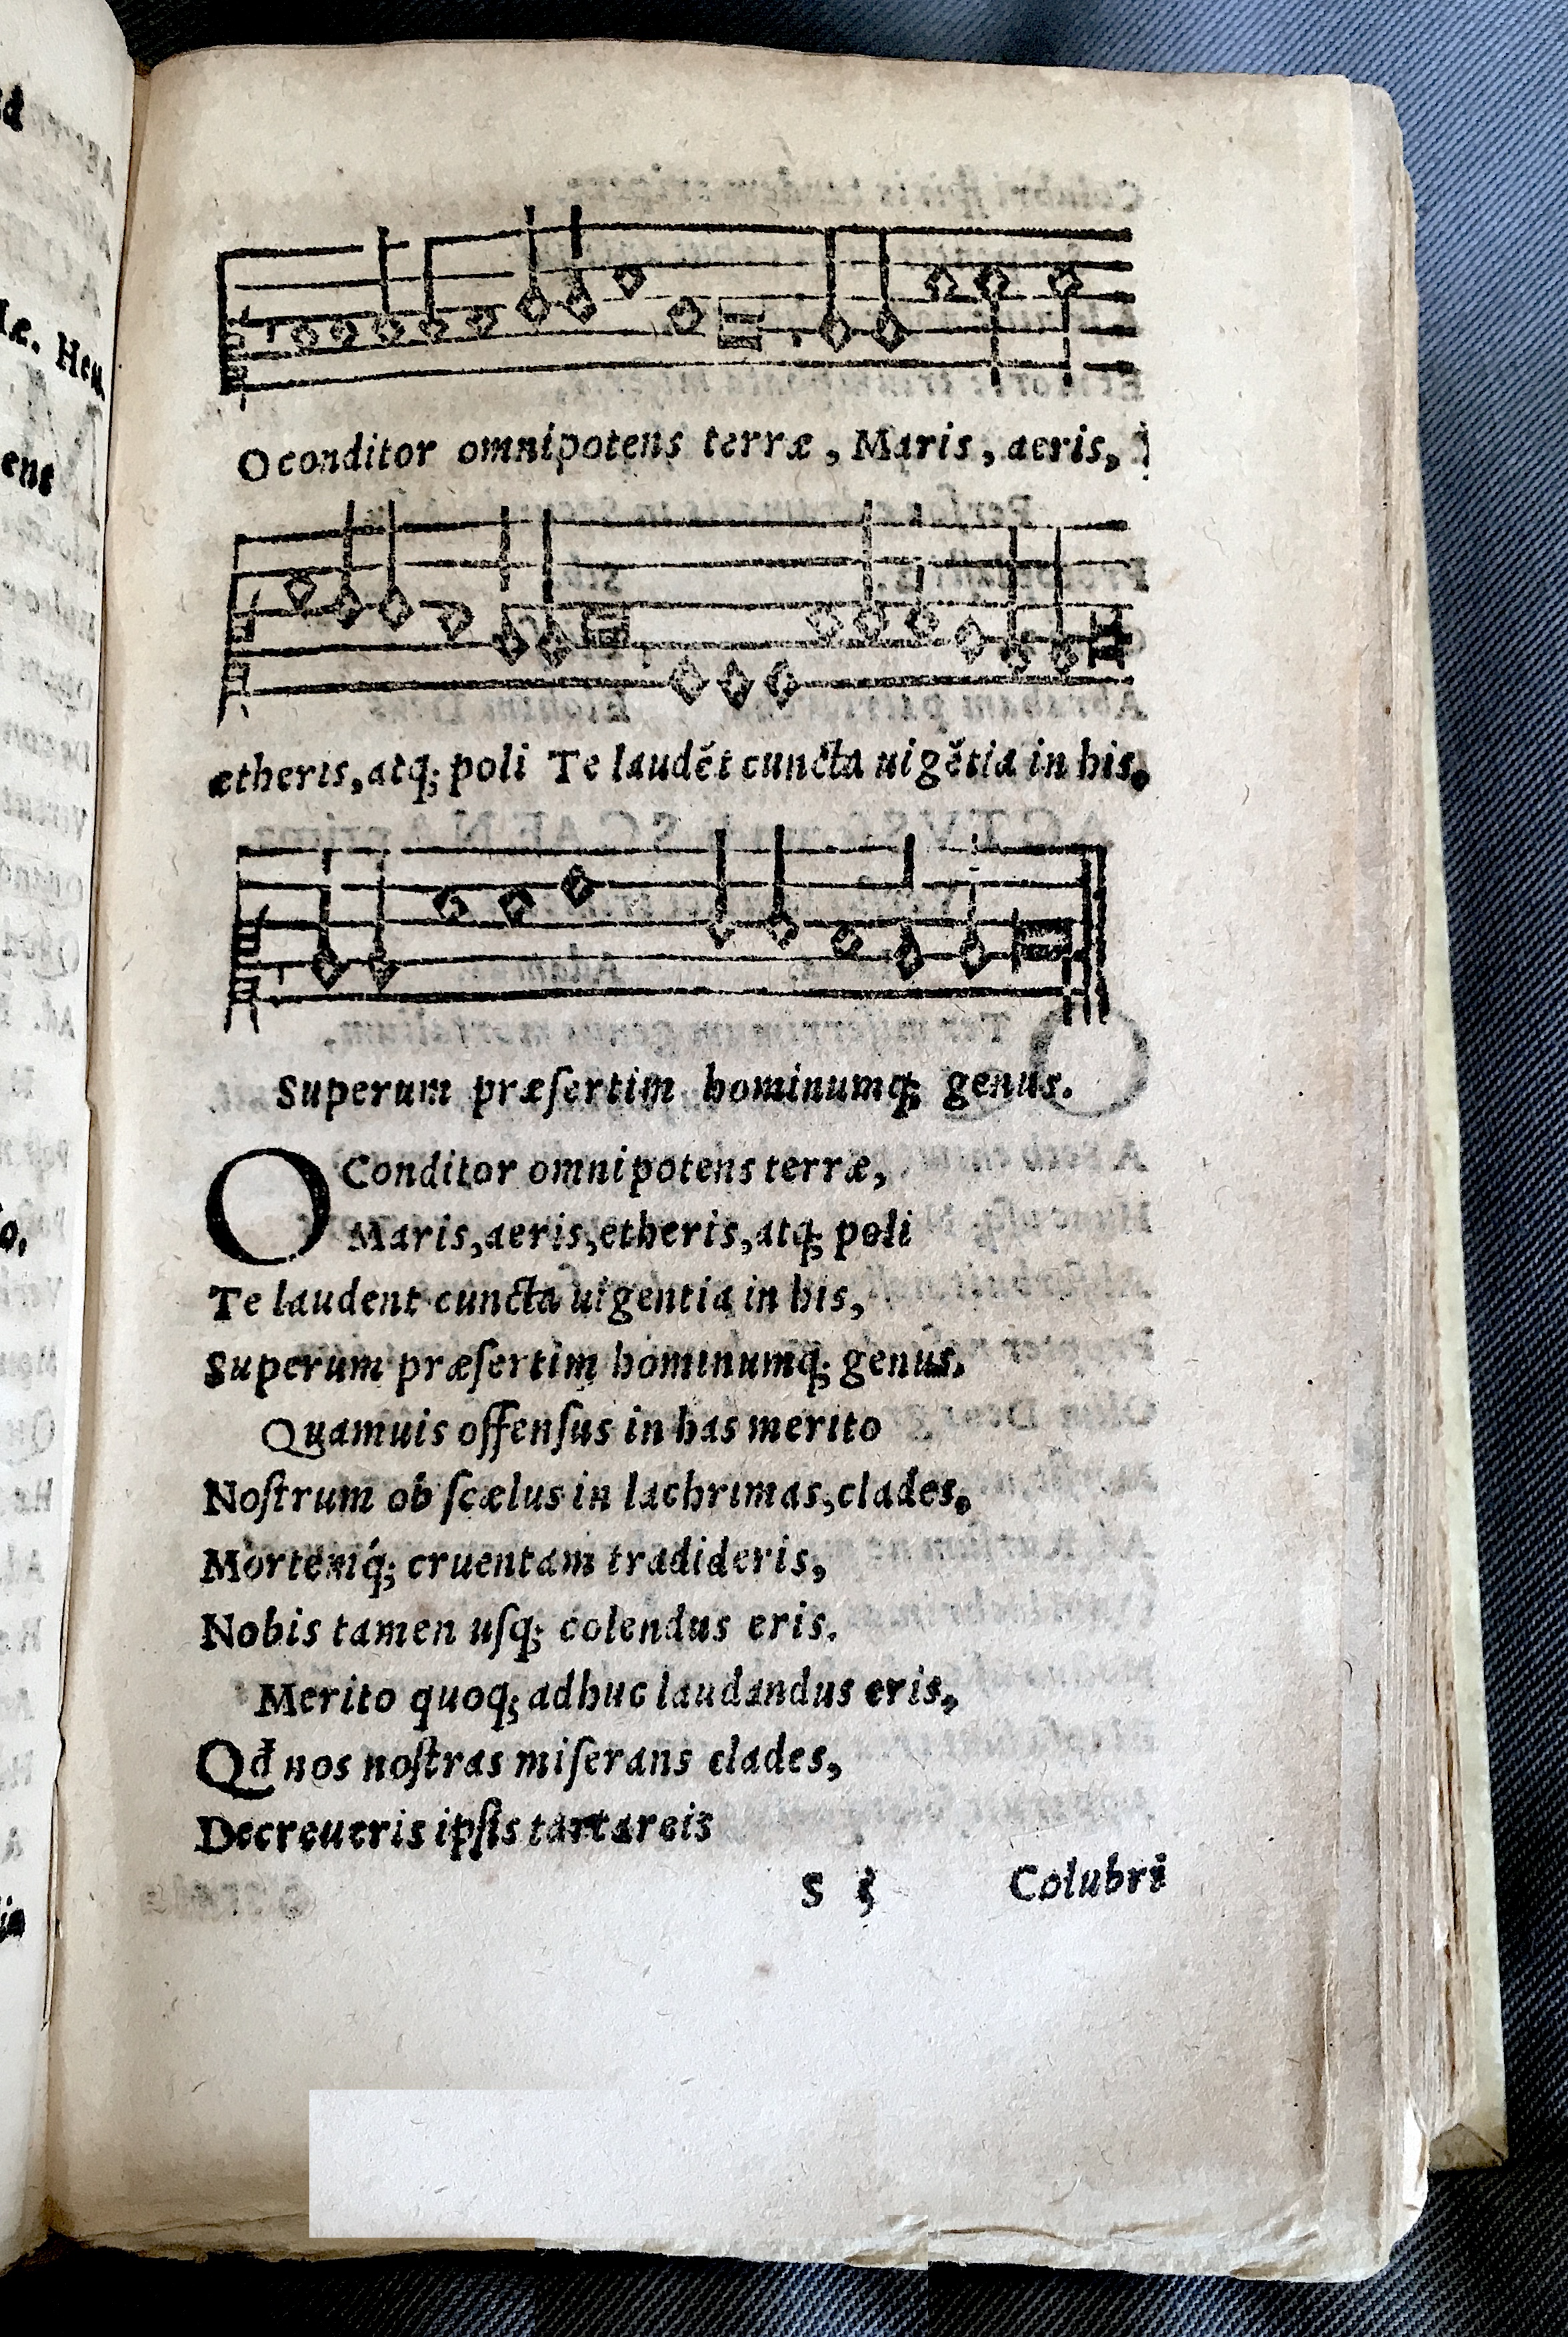 O conditor omnipotens terræ, Maris, aeris,
ætheris, atq; poli Te laudẽt cuncta uigẽtia in his,
Superum præſertim hominumq; genus.
O Conditor omnipotens terræ,
Maris, aeris, etheris, atq; poli
Te laudent cuncta uigentia in his,
Superum præſertim hominumq; genus.
Quamuis offenſus in has merito
Noſtrum ob ſcælus in lachrimas, clades,
Mortemq́; cruentam tradideris,
Nobis tamen uſq; colendus eris.
Merito quoq; adhuc laudandus eris,
Qđ nos noſtras miſerans clades,
Decreueris ipſis tartareis
S
Colubri